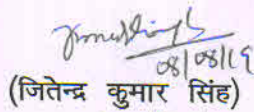 08/08/16
(जितेन्द्र कुमार सिंह)